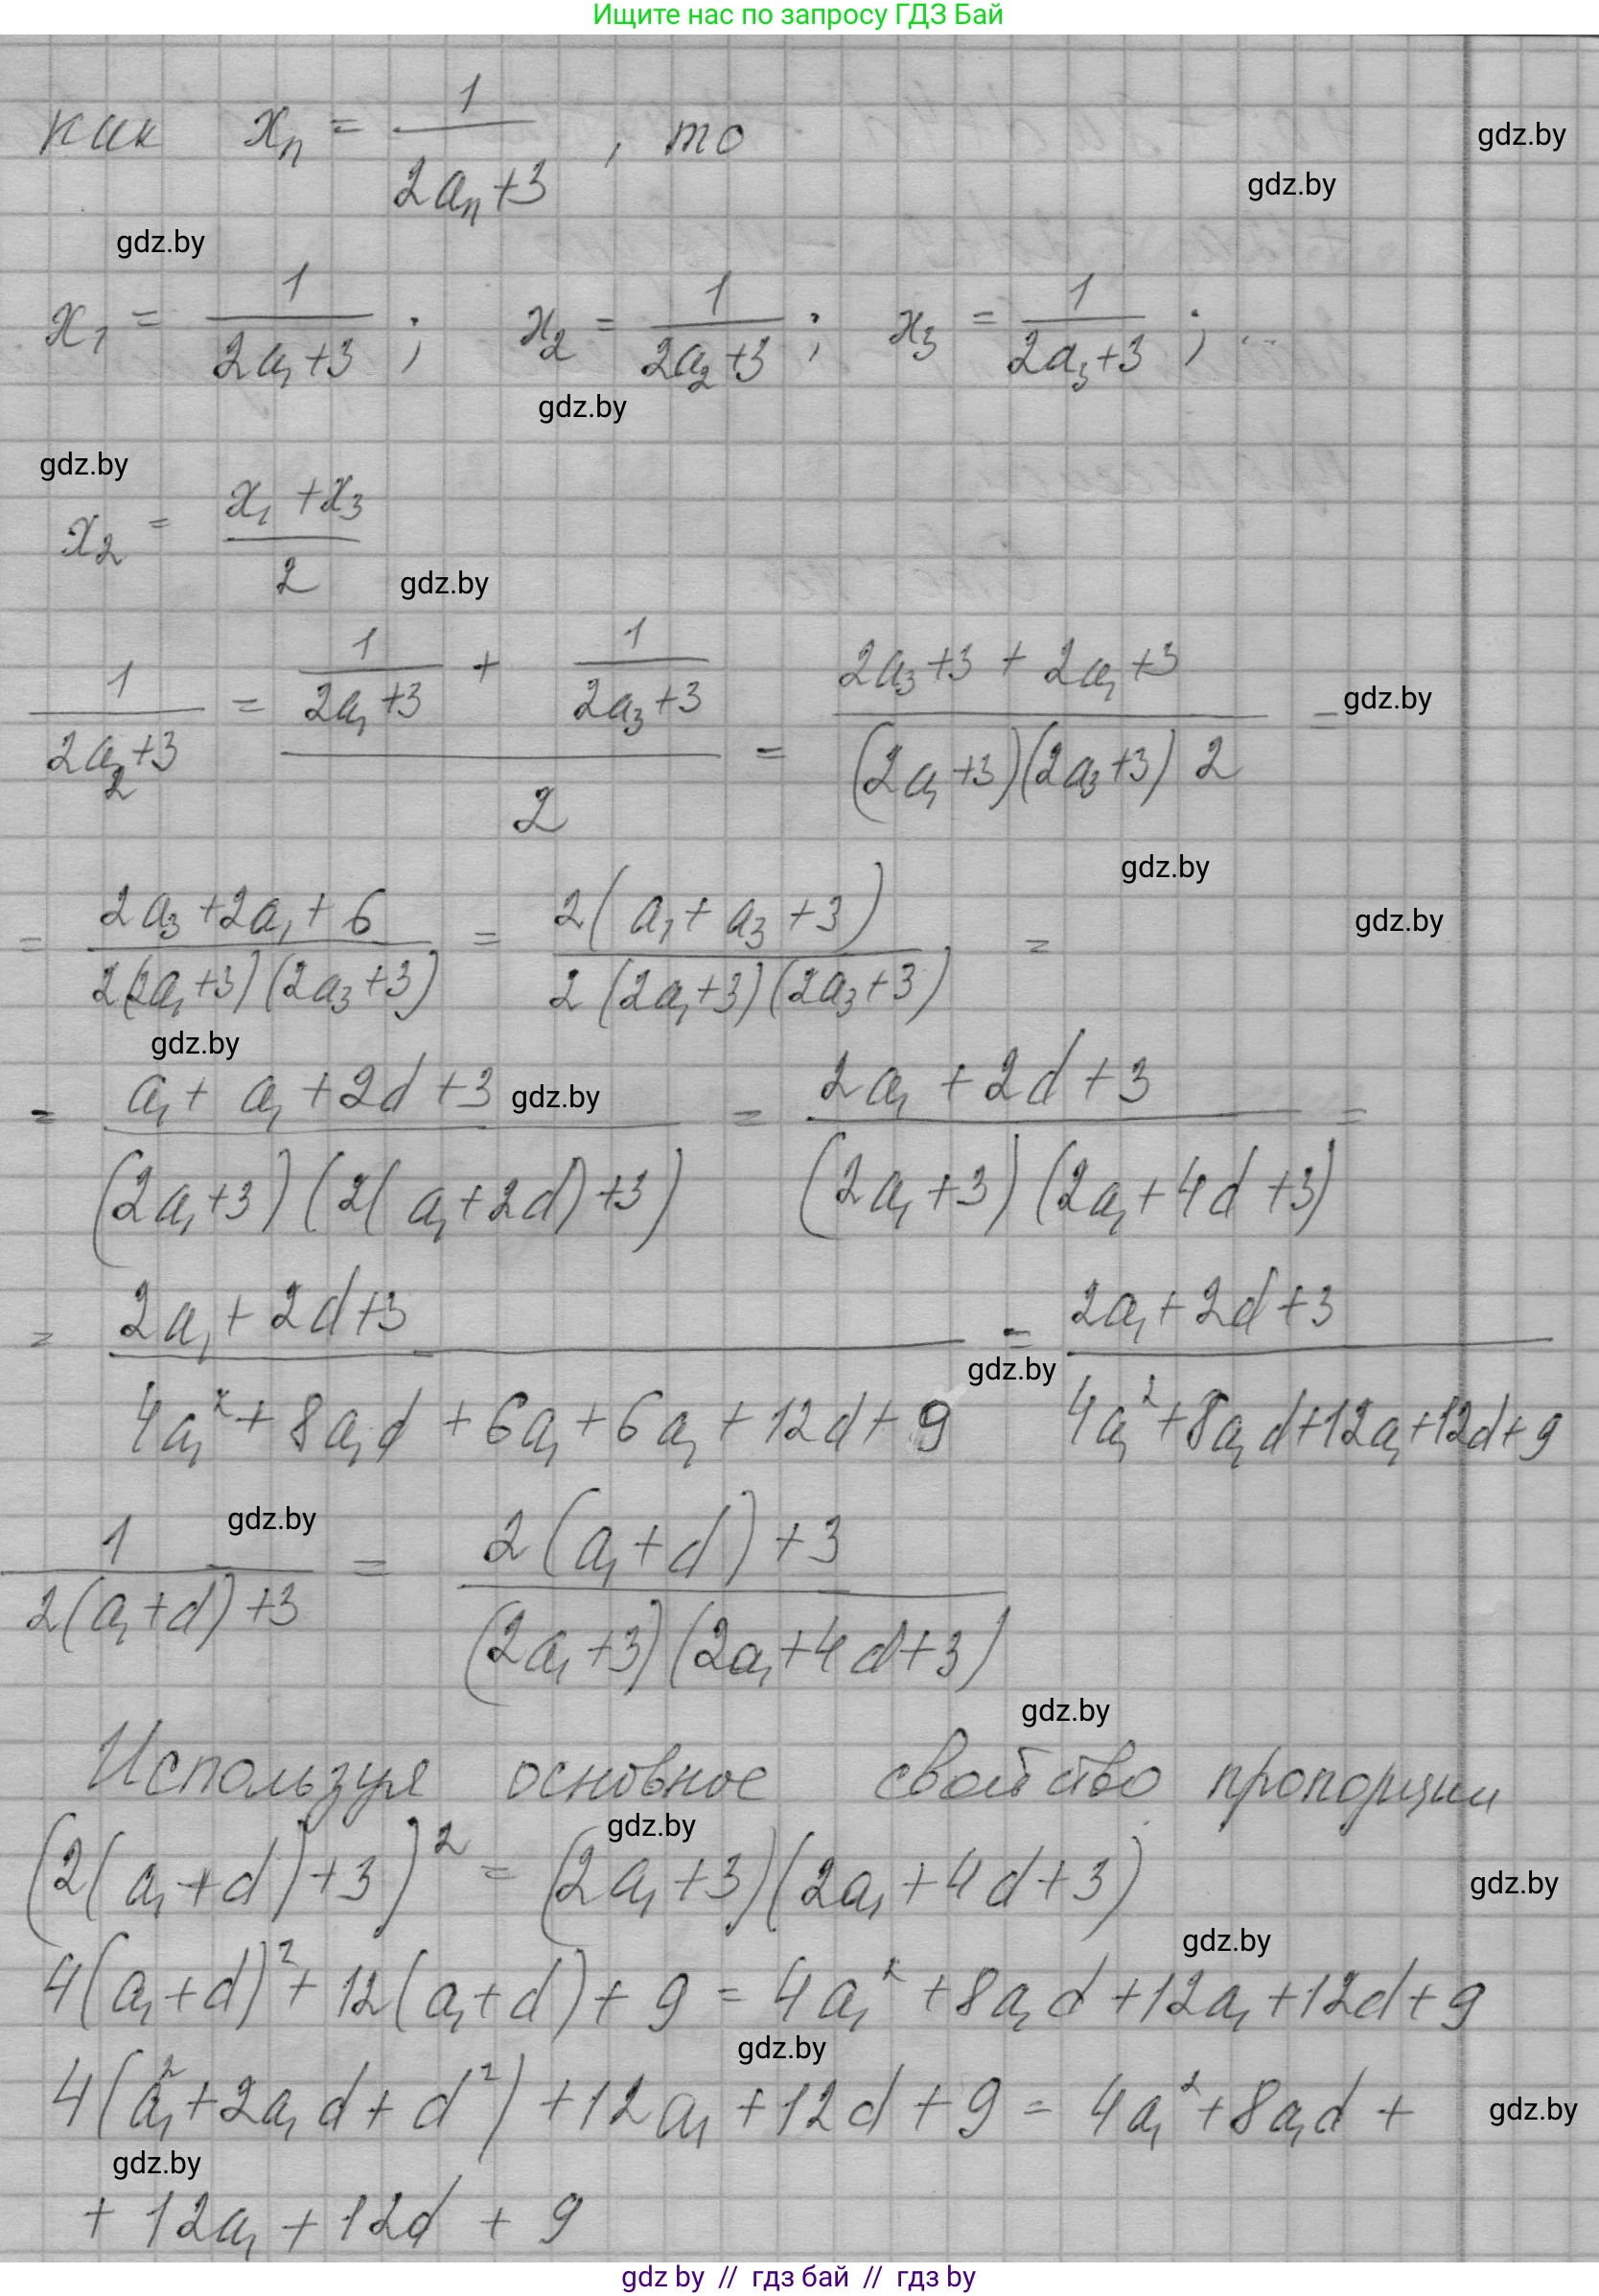 Ищите нас по запросу ГДЗ Бай
как xₙ = 1/(2aₙ+3), то
gdz.by
gdz.by
gdz.by
x₁ = 1/(2a₁+3); x₂ = 1/(2a₂+3); x₃ = 1/(2a₃+3); ...
gdz.by
gdz.by
x₂ = (x₁+x₃)/2
gdz.by
1/(2a₂+3) = (1/(2a₁+3) + 1/(2a₃+3))/2 = (2a₃+3+2a₁+3)/((2a₁+3)(2a₃+3)2) =
gdz.by
gdz.by
= (2a₃+2a₁+6)/(2(2a₁+3)(2a₃+3)) = 2(a₁+a₃+3)/(2(2a₁+3)(2a₃+3)) =
gdz.by
gdz.by
= (a₁+a₁+2d+3)/((2a₁+3)(2(a₁+2d)+3)) = (2a₁+2d+3)/((2a₁+3)(2a₁+4d+3)) =
gdz.by
= (2a₁+2d+3)/(4a₁²+8a₁d+6a₁+6a₁+12d+9) = (2a₁+2d+3)/(4a₁²+8a₁d+12a₁+12d+9)
gdz.by
gdz.by
1/(2(a₁+d)+3) = (2(a₁+d)+3)/((2a₁+3)(2a₁+4d+3))
gdz.by
Используя основное свойство пропорции
gdz.by
(2(a₁+d)+3)² = (2a₁+3)(2a₁+4d+3)
gdz.by
gdz.by
4(a₁+d)²+12(a₁+d)+9 = 4a₁²+8a₁d+12a₁+12d+9
gdz.by
4(a₁²+2a₁d+d²)+12a₁+12d+9 = 4a₁²+8a₁d+
gdz.by
gdz.by
+12a₁+12d+9
gdz by // гдз бай // гдз by